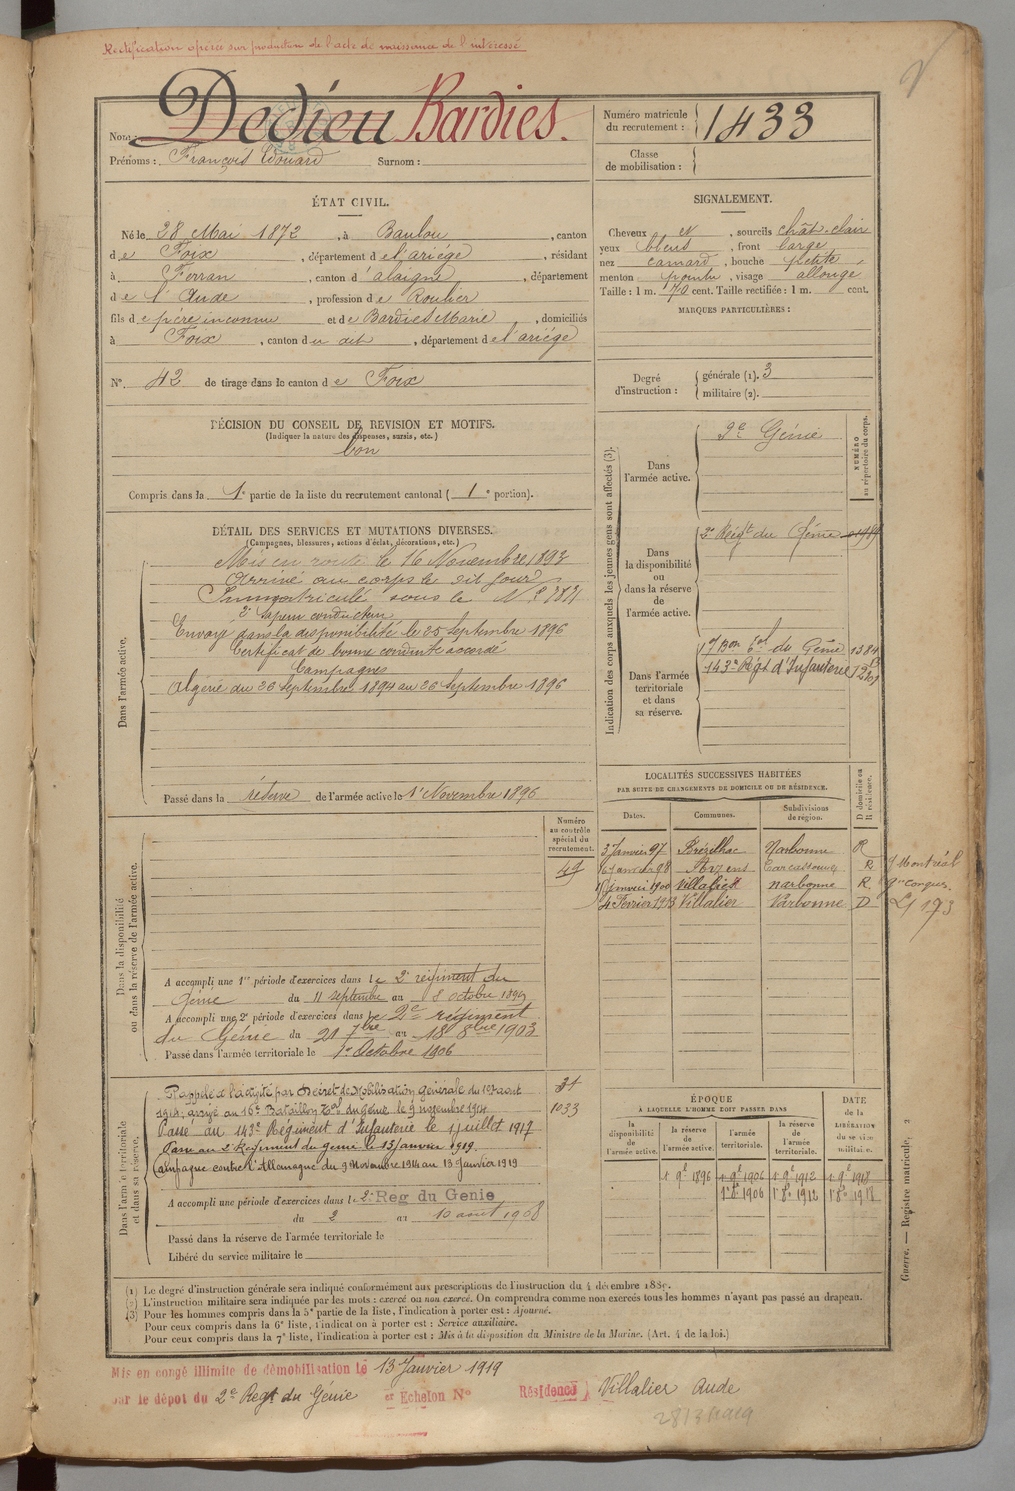 Rectification opérée sur production de l'acte de naissance de l'intéressé
Nom : Dedieu Bardies.
Prénoms : François Edouard Surnom :
Numéro matricule du recrutement : 1433
Classe de mobilisation :
ÉTAT CIVIL.
Né le 28 Mai 1872, à Baulou, canton
de Foix, département de l'ariège, résidant
à Ferran, canton d'alaigne, département
de l'Aude, profession de Roulier
fils de père inconnu et de Bardies Marie, domiciliés
à Foix, canton du dit, département de l'ariège
N° 42 de tirage dans le canton de Foix
SIGNALEMENT.
Cheveux et, sourcils chât-clair
yeux bleus, front large
nez camard, bouche petite
menton pointu, visage allongé
Taille : 1 m. 70 cent. Taille rectifiée : 1 m. cent.
MARQUES PARTICULIÈRES :
Degré d'instruction : générale (1). 3
militaire (2).
DÉCISION DU CONSEIL DE REVISION ET MOTIFS.
(Indiquer la nature des dispenses, sursis, etc.)
bon
Compris dans la 1e partie de la liste du recrutement cantonal ( 1e portion).
DÉTAIL DES SERVICES ET MUTATIONS DIVERSES.
(Campagnes, blessures, actions d'éclat, décorations, etc.)
Dans l'armée active.
Mis en route le 16 Novembre 1893
Arrivé au corps le dit jour
Immatriculé sous le N°
2e sapeur conducteur
Envoyé dans la disponibilité le 25 Septembre 1896
Certificat de bonne conduite accordé
Campagnes
Algérie du 26 Septembre 1894 au 26 Septembre 1896
Passé dans la réserve de l'armée active le 1er Novembre 1896
Indication des corps auxquels les jeunes gens sont affectés (3).
NUMÉRO au répertoire du corps.
Dans l'armée active.
2e Génie
Dans la disponibilité ou dans la réserve de l'armée active.
2e Régt du Génie
Dans l'armée territoriale et dans sa réserve.
17 Bon tal du Génie 1384
143e Régt d'Infanterie
LOCALITÉS SUCCESSIVES HABITÉES
PAR SUITE DE CHANGEMENTS DE DOMICILE OU DE RÉSIDENCE.
Dates. Communes. Subdivisions de région. D domicile ou R résidence.
3 Janvier 97 Brézilhac Narbonne R
16 janvier 98 Arzens Carcassonne R Montréal
janvier 1900 Villalier narbonne R Conques
4 Février 1913 Villalier Narbonne D
Numéro au contrôle spécial du recrutement.
49
Dans la disponibilité ou dans la réserve de l'armée active.
A accompli une 1re période d'exercices dans le 2e régiment du
Génie du 11 septembre au 8 octobre 1899
A accompli une 2e période d'exercices dans le 2e régiment
du Génie du 21 7bre au 18 8bre 1903
Passé dans l'armée territoriale le 1er Octobre 1906
Dans l'armée territoriale et dans sa réserve.
Rappelé à l'activité par Décret de Mobilisation générale du 1er août 31
1914, arrivé au 16e Bataillon Tal du génie le 9 novembre 1914 1033
Passé au 143e Régiment d'Infanterie le 1 juillet 1917
Passé au 2e Régiment du génie le 13 janvier 1919.
Campagne contre l'Allemagne du 9 Novembre 1914 au 13 Janvier 1919
A accompli une période d'exercices dans le 2e Reg du Genie
du 2 au 10 aout 1908
Passé dans la réserve de l'armée territoriale le
Libéré du service militaire le
ÉPOQUE
À LAQUELLE L'HOMME DOIT PASSER DANS
la disponibilité de l'armée active. la réserve de l'armée active. l'armée territoriale. la réserve de l'armée territoriale. DATE de la LIBÉRATION du service militaire.
1er 9bre 1896 1er 9bre 1906 1er 9bre 1912 1er 9bre 1918
1er 8bre 1906 1er 8bre 1912 1er 8bre 1918
Guerre. — Registre matricule, 2
(1) Le degré d'instruction générale sera indiqué conformément aux prescriptions de l'instruction du 4 décembre 1889.
(2) L'instruction militaire sera indiquée par les mots : exercé ou non exercé. On comprendra comme non exercés tous les hommes n'ayant pas passé au drapeau.
(3) Pour les hommes compris dans la 5e partie de la liste, l'indication à porter est : Ajourné.
Pour ceux compris dans la 6e liste, l'indication à porter est : Service auxiliaire.
Pour ceux compris dans la 7e liste, l'indication à porter est : Mis à la disposition du Ministre de la Marine. (Art. 4 de la loi.)
Mis en congé illimité de démobilisation le 13 Janvier 1919
par le dépot du 2e Regt du Génie er Echelon N° Résidence Villalier Aude
28/3 1919